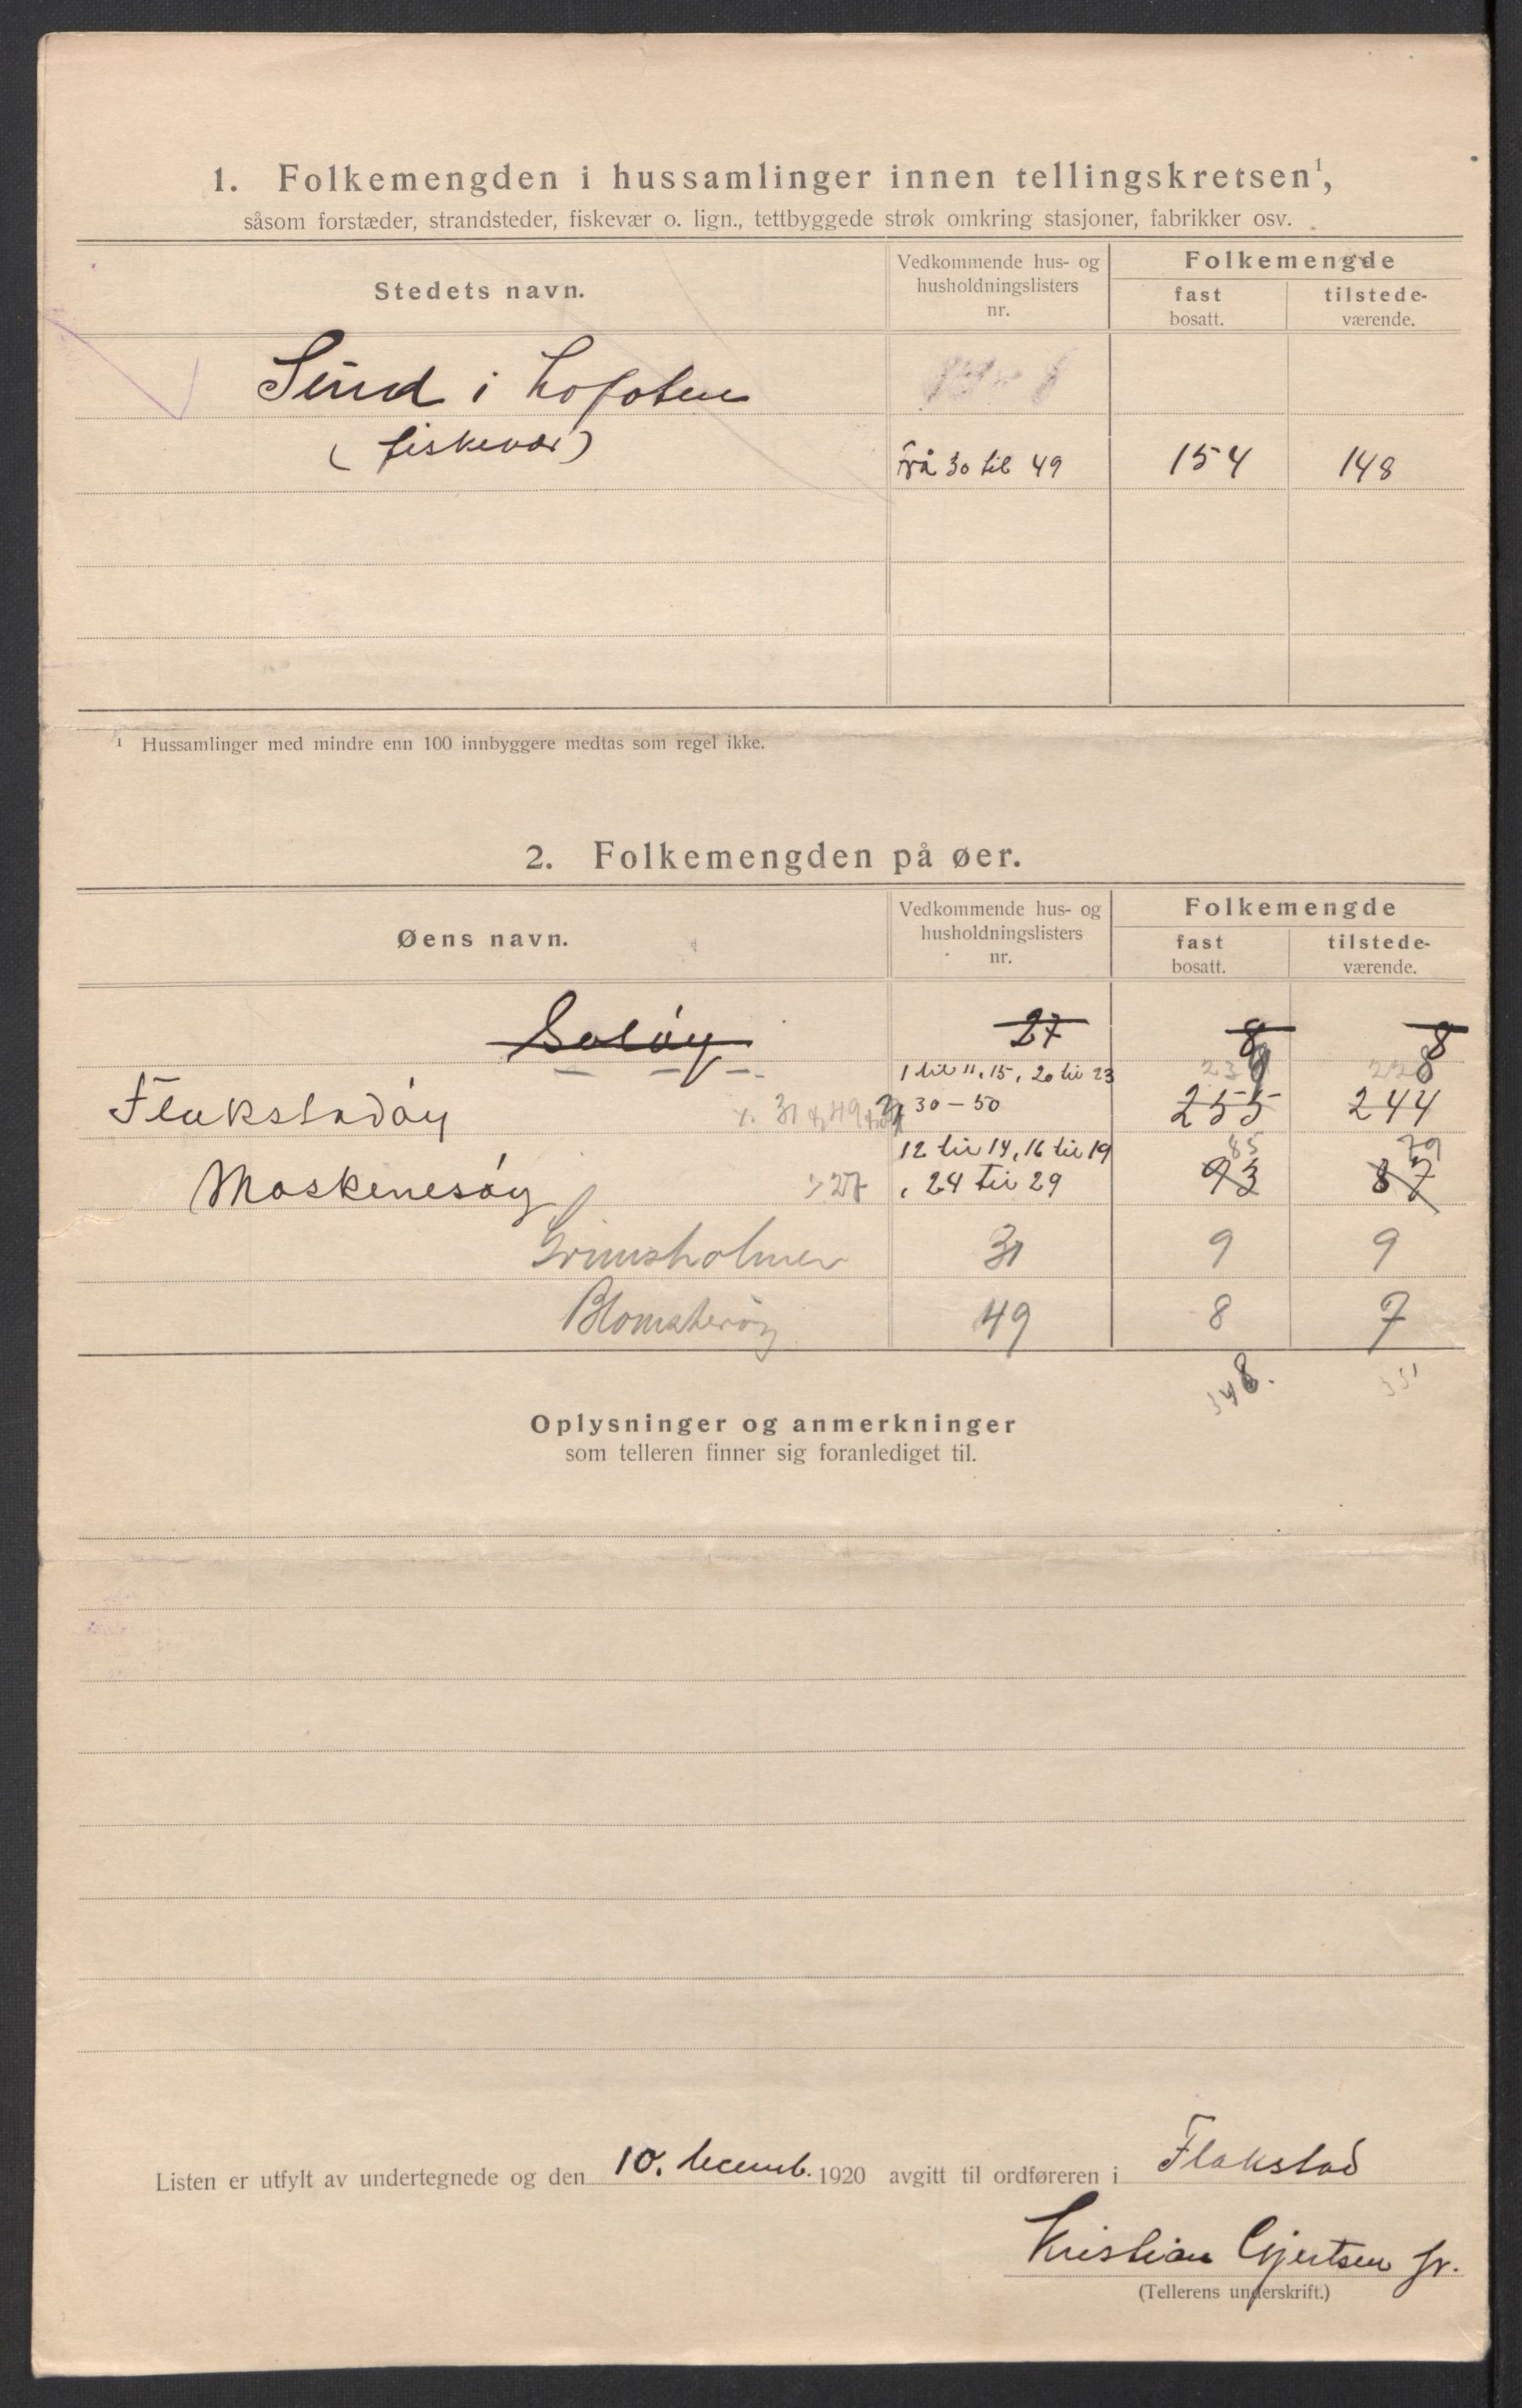 1. Folkemengden i hussamlinger innen tellingskretsen¹,
såsom forstæder, strandsteder, fiskevær o. lign., tettbyggede strøk omkring stasjoner, fabrikker osv.
Stedets navn.
Vedkommende hus- og husholdningslisters nr.
Folkemengde
fast bosatt.
tilstede-værende.
Sund i Lofoten
(fiskevær) frå 30 til 49 154 148
¹ Hussamlinger med mindre enn 100 innbyggere medtas som regel ikke.
2. Folkemengden på øer.
Øens navn.
Vedkommende hus- og husholdningslisters nr.
Folkemengde
fast bosatt.
tilstede-værende.
Soløy 27 8 8
1 til 11, 15, 20 til 23 228
Flakstadøy 30-50 255 244
12 til 14, 16 til 19 85 79
Moskenesøy 27, 24 til 29 93 87
Grimsholmen 31 9 9
Blomsterøy 49 8 7
348. 331
Oplysninger og anmerkninger
som telleren finner sig foranlediget til.
Listen er utfylt av undertegnede og den 10. decemb. 1920 avgitt til ordføreren i Flakstad
Kristian Gjertsen jr.
(Tellerens underskrift.)